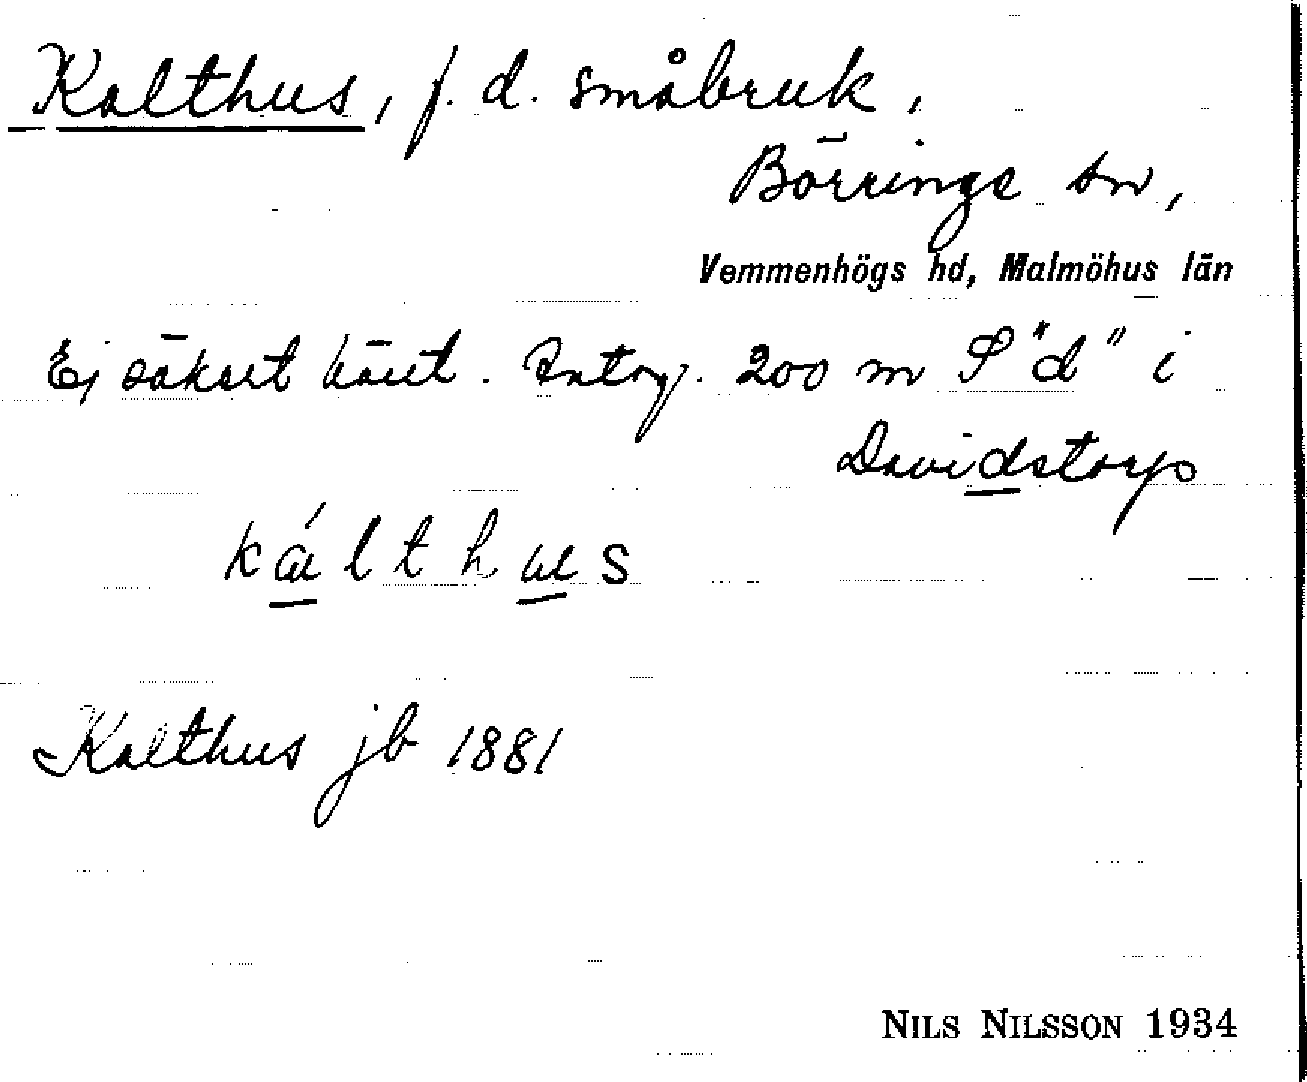 Kalthus, f. d. småbruk,
Börringe sn,
Vemmenhögs hd, Malmöhus län
Ej säkert känt. Antag. 200 m S "d" i
Davidstorp
kálthus
Kalthus jb 1881
NILS NILSSON 1934